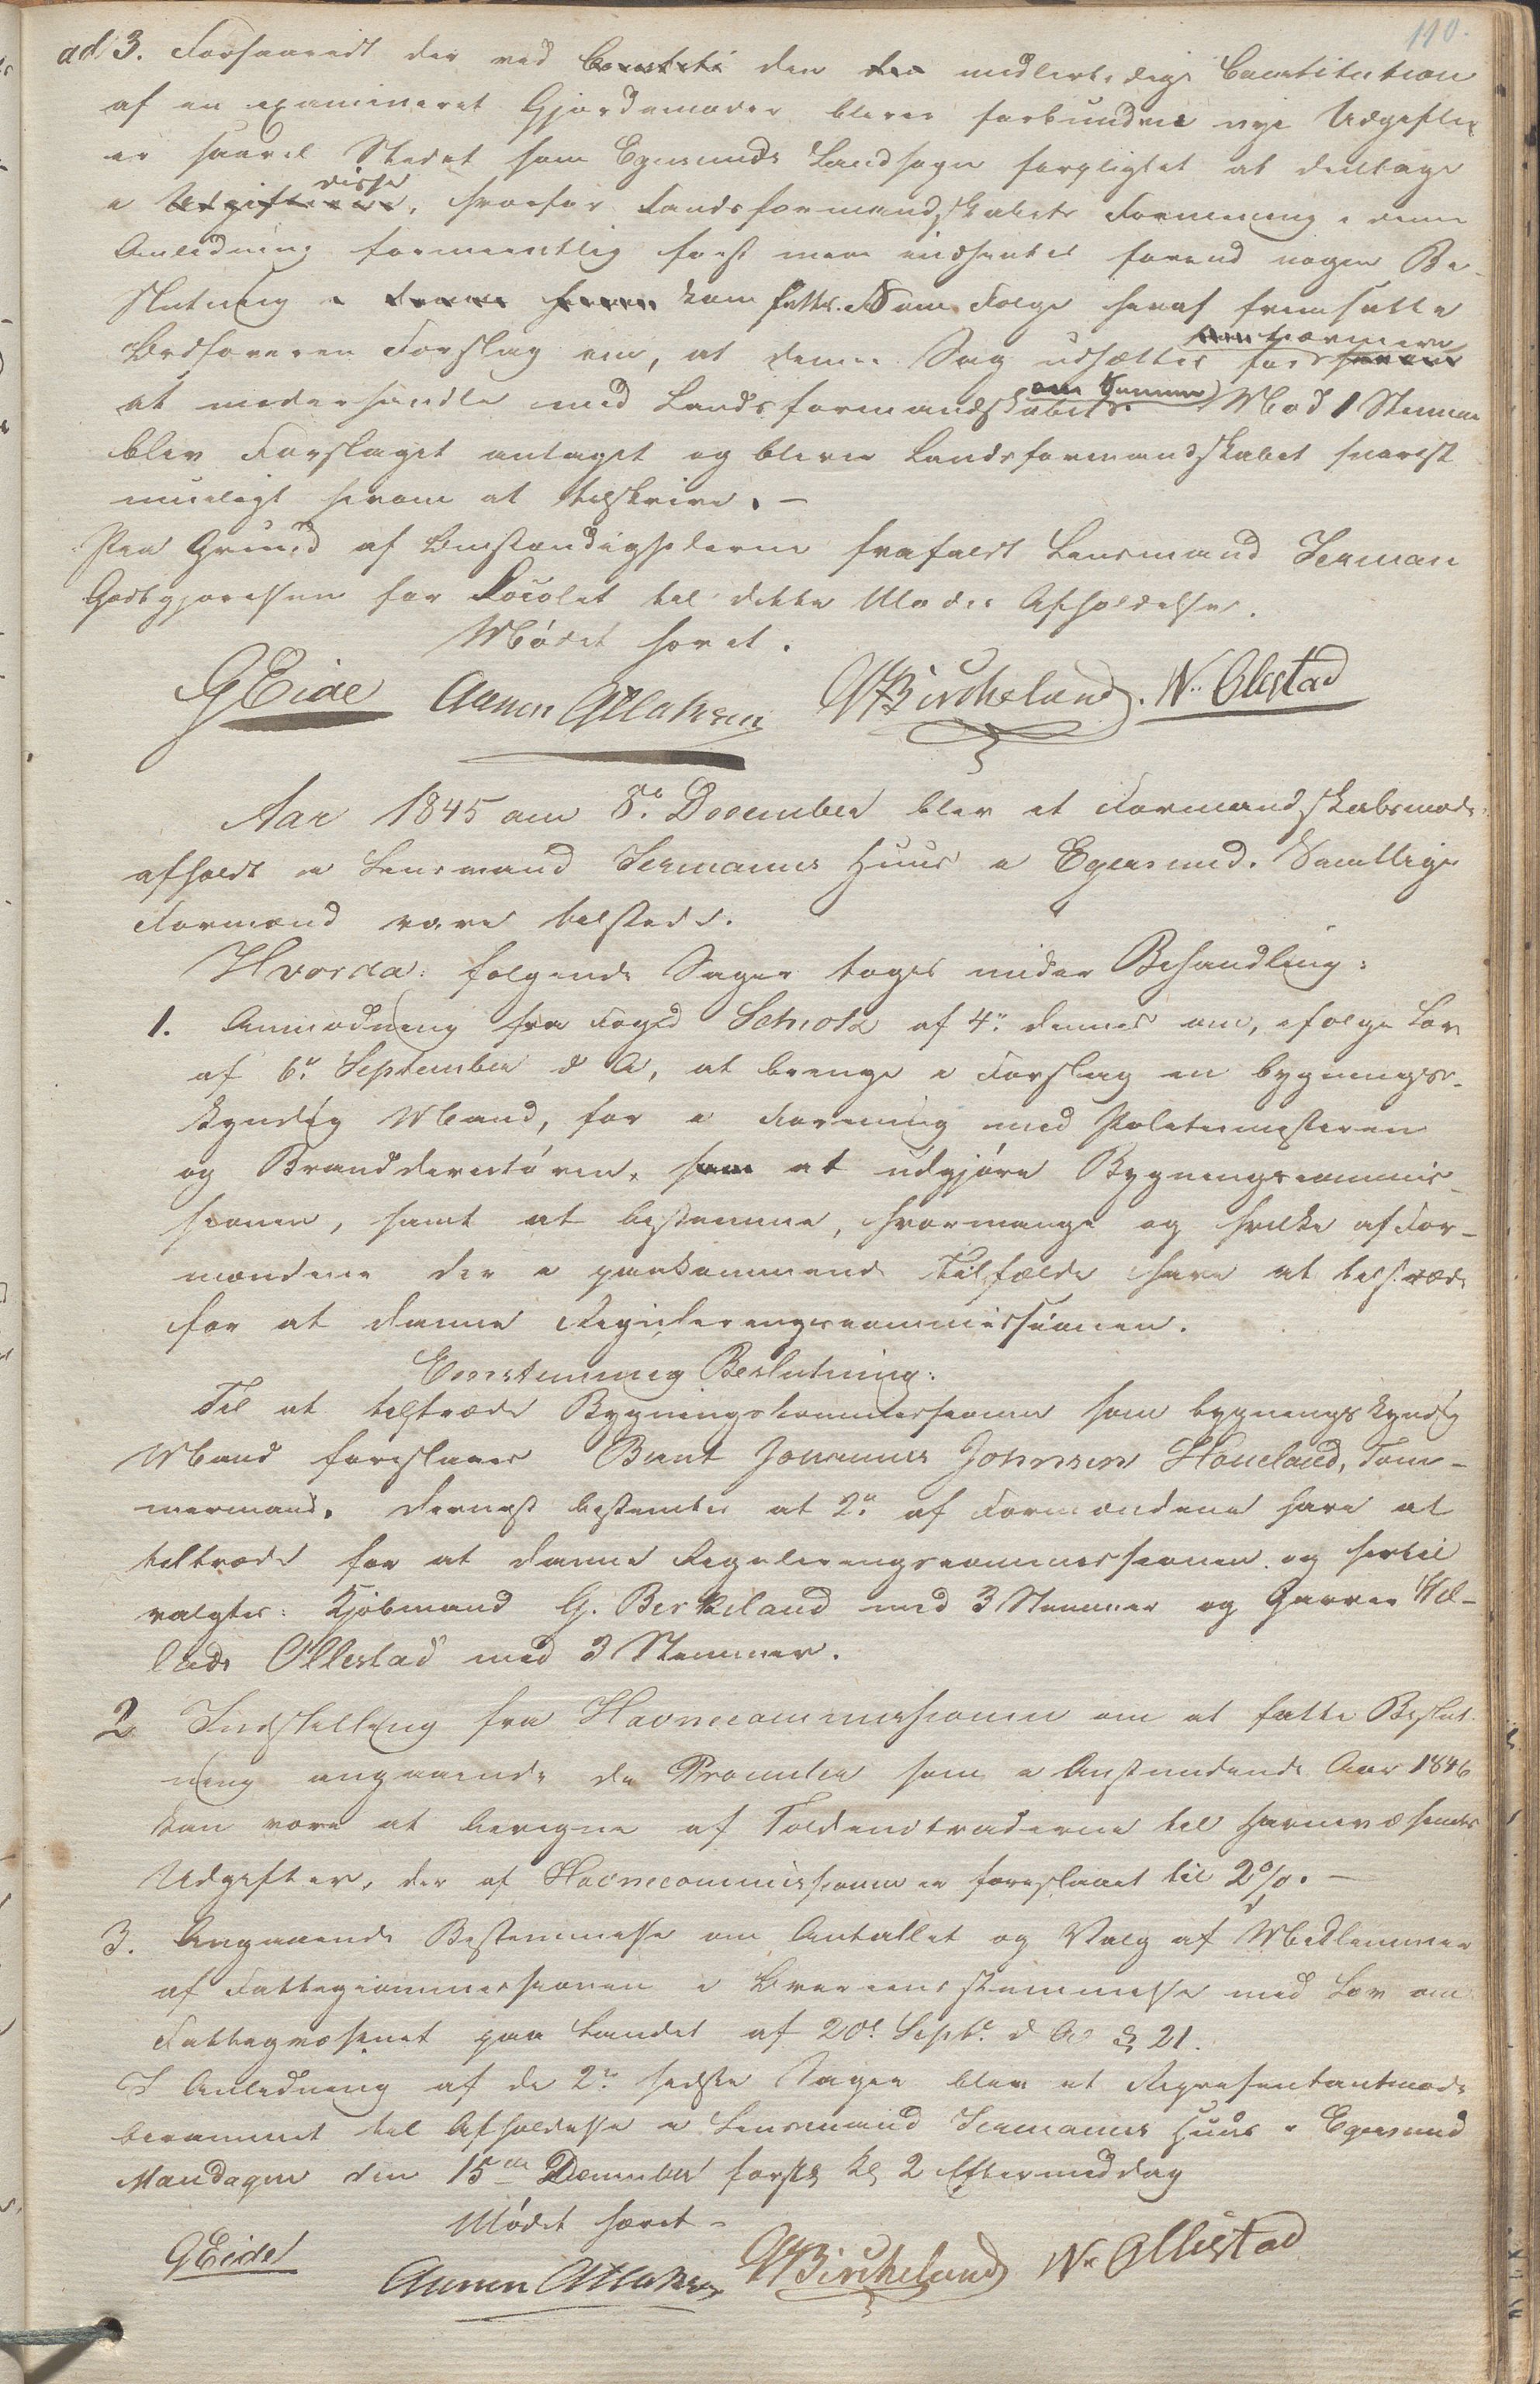 110.
ad 3. Forsaavidt der ved Constit den den midlertidige Constitution
af en examineret Gjordemoder bliver forbundne nye Udgifter
er saavel Stedet som Egersunds Landsogn forpligtet at deeltage
i Udgifterne disse, hvorfor Landsformandskabets Formening i denne
Anledning formeentlig først maa indhentes forend nogen Be-
slutning i denne kan fattes. Som Følge heraf fremsatte
Ordføreren Forslag om, at denne Sag udsættes for nærmere
at underhandle med Landsformandskabet om Samme. Mod 1 Stemme
blev Forslaget antaget og bliver Landsformandskabet snarest
mueligt herom at tilskrive. –
Paa Grund af Omstændighederne frafaldt Lensmand Seeman
Godtgjørelsen for Locolet til dette Mødes Afholdelse.
Mødet hævet.
G Eide Aanen Atlaksen G Birckeland. W. Ollestad
Aar 1845 am 8de December blev et Formandskabsmøde
afholdt i Lensmand Seemanns Huus i Egersund. Samtlige
Formænd vare tilstede.
Hvorda: følgende Sager toges under Behandling:
1. Anmodning fra Foged Schiøtz af 4de dennes om, ifølge Lov
af 6te September d A, at bringe i Forslag en bygnings-
kyndig Mand, for i Forening med Politimesteren
og Branddirectøren, som at udgjøre Bygningscommis-
sionen, samt at bestemme, hvormange og hvilke af For-
mændene der i paakommende Tilfælde have at tiltræde
for at danne Reguleringscommissionen.
Eenstemmig Beslutning:
Til at tiltræde Bygningskommissionen som bygningskyndig
Mand foreslaaes Bernt Johannes Johnsen Haueland, Tøm-
mermand. Dernæst bestemtes at 2de af Formændene have at
tiltræde for at danne Reguleringscommissionen og hertil
valgtes: Kjøbmand G. Berkeland med 3 Stemmer og Garver Wil-
lads Ollestad med 3 Stemmer.
2 Indstilling fra Havnecommissionen om at fatte Beslut-
ning angaaende de Procenter som i Anstundende Aar 1846
kan være at beregne af Toldindtraderne til Havnevæsenets
Udgifter, der af Havnecommissionen er foreslaaet til 2 %. –
3. Angaaende Bestemmelse om Antallet og Valg af Medlemmer
af Fattigcommissionen i Overeensstemmelse med Lov om
Fattigvæsenet paa Landet af 20de Septbr. d A § 21.
I Anledning af de 2de sidste Sager blev et Repræsentantmøde
berammet til Afholdelse i Lensmand Seemanns Huus i Egersund
Mandagen den 15de December førstk Kl 2 Eftermiddag
Mødet hævet –
G Eide Aanen Atlaksen G Birckeland W. Ollestad